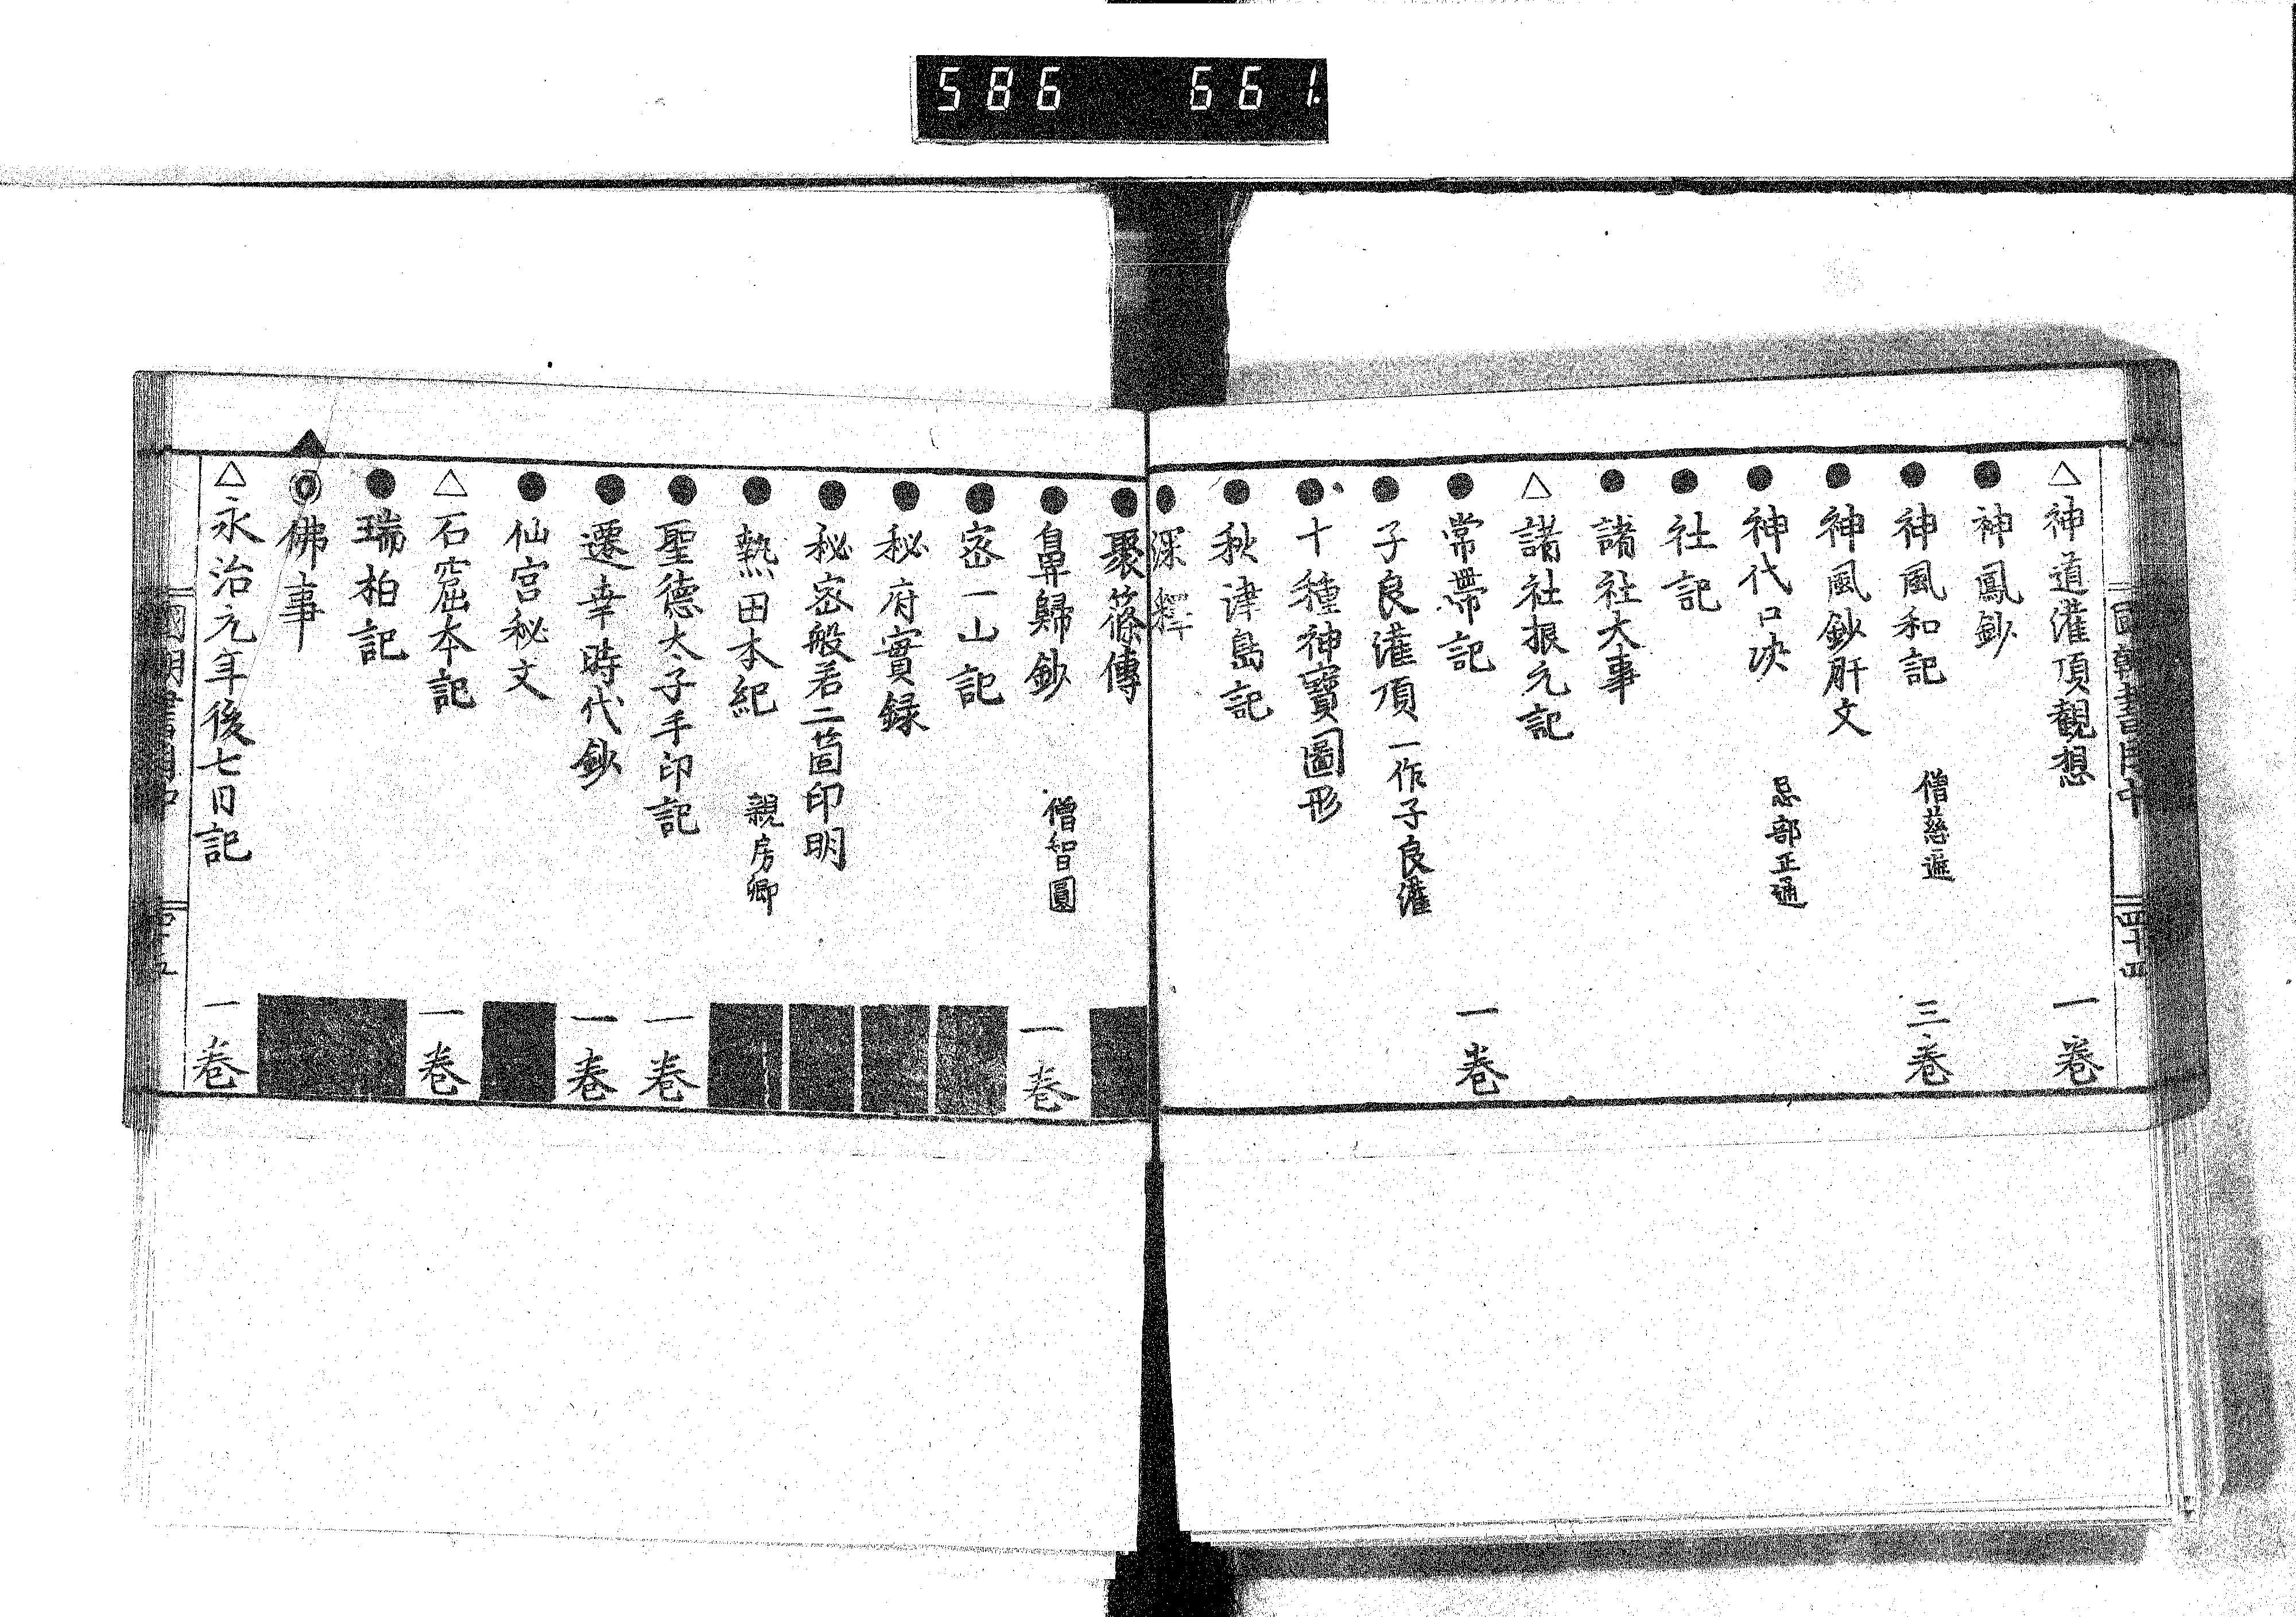 586 661.
國朝書目中
四十四
△神道灌頂觀想 一卷
●神鳳鈔
●神風和記 僧慈遍 三卷
●神風鈔肝文
●神代口决 忌部正通
●社記
●諸社大事
△諸社根元記
●常帶記 一卷
●子良灌頂 一作子良灌
●十種神寶圖形
●秋津島記
●深釋
●聚篠傳
●鼻歸鈔 僧智圓 一卷
●宻一山記
●秘府實録
●秘宻般若二箇印明
●熱田本紀 親房卿
●聖德太子手印記 一卷
●遷幸時代鈔 一卷
●仙宮秘文
△石窟本記 一卷
●瑞柏記
▲
◎佛事
△永治元年後七日記 一卷